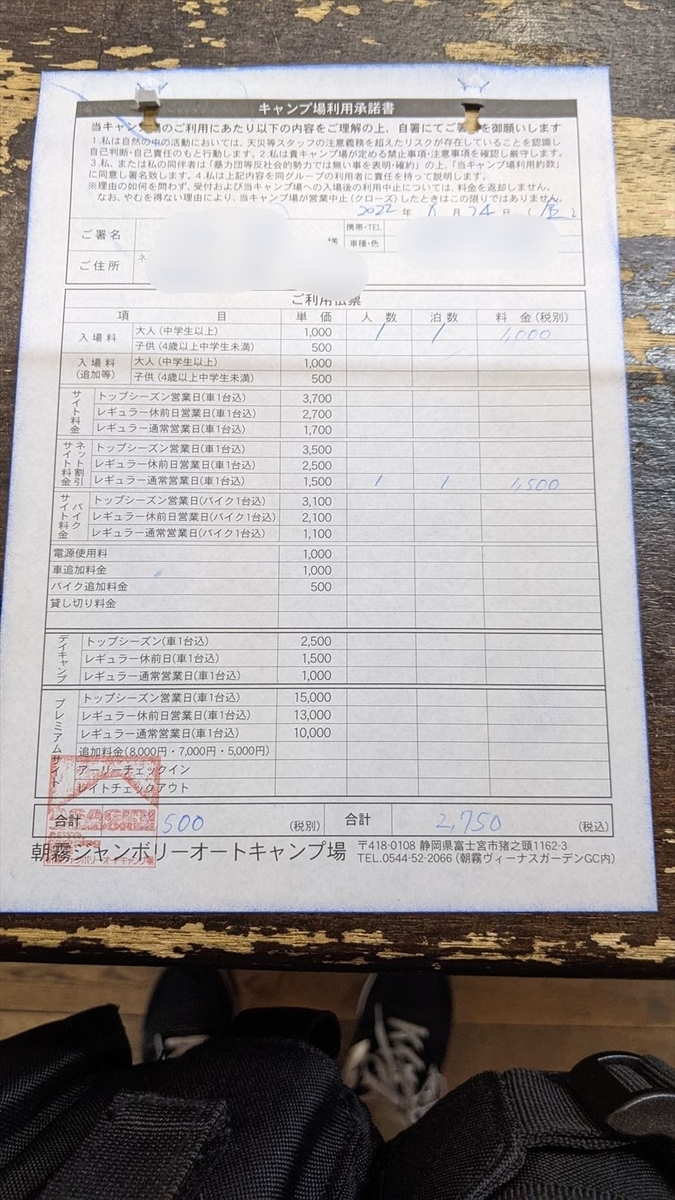 キャンプ場利用承諾書
当キャン のご利用にあたり以下の内容をご理解の上、自署にてご署 を御願いします
1.私は自然の中の活動においては、天災等スタッフの注意義務を超えたリスクが存在していることを認識し
自己判断・自己責任のもと行動します。2.私は貴キャンプ場が定める禁止事項・注意事項を確認し厳守します。
3.私、または私の同伴者は「暴力団等反社会的勢力では無い事を表明・確約」の上、「当キャンプ場利用約款」
に同意し署名致します。4.私は上記内容を同グループの利用者に責任を持って説明します。
※理由の如何を問わず、受付および当キャンプ場への入場後の利用中止については、料金を返却しません。
なお、やむを得ない理由により、当キャンプ場が営業中止(クローズ)したときはこの限りではありません。
2022 年 月 24 日
ご署名 様 携帯・TEL
車種・色
ご住所
ご利用伝票
項 目 単 価 人 数 泊 数 料 金(税別)
入場料 大人(中学生以上) 1,000 1 1 1,000
子供(4歳以上中学生未満) 500
入場料(追加等) 大人(中学生以上) 1,000
子供(4歳以上中学生未満) 500
サイト料金 トップシーズン営業日(車1台込) 3,700
レギュラー休前日営業日(車1台込) 2,700
レギュラー通常営業日(車1台込) 1,700
ネット割引サイト料金 トップシーズン営業日(車1台込) 3,500
レギュラー休前日営業日(車1台込) 2,500
レギュラー通常営業日(車1台込) 1,500 1 1 1,500
バイクサイト料金 トップシーズン営業日(バイク1台込) 3,100
レギュラー休前日営業日(バイク1台込) 2,100
レギュラー通常営業日(バイク1台込) 1,100
電源使用料 1,000
車追加料金 1,000
バイク追加料金 500
貸し切り料金
デイキャンプ トップシーズン(車1台込) 2,500
レギュラー休前日(車1台込) 1,500
レギュラー通常営業日(車1台込) 1,000
プレミアムサイト トップシーズン営業日(車1台込) 15,000
レギュラー休前日営業日(車1台込) 13,000
レギュラー通常営業日(車1台込) 10,000
追加料金(8,000円・7,000円・5,000円)
アーリーチェックイン
レイトチェックアウト
合計 500 (税別) 合計 2,750 (税込)
朝霧ジャンボリーオートキャンプ場 〒418-0108 静岡県富士宮市猪之頭1162-3
TEL.0544-52-2066 (朝霧ヴィーナスガーデンGC内)